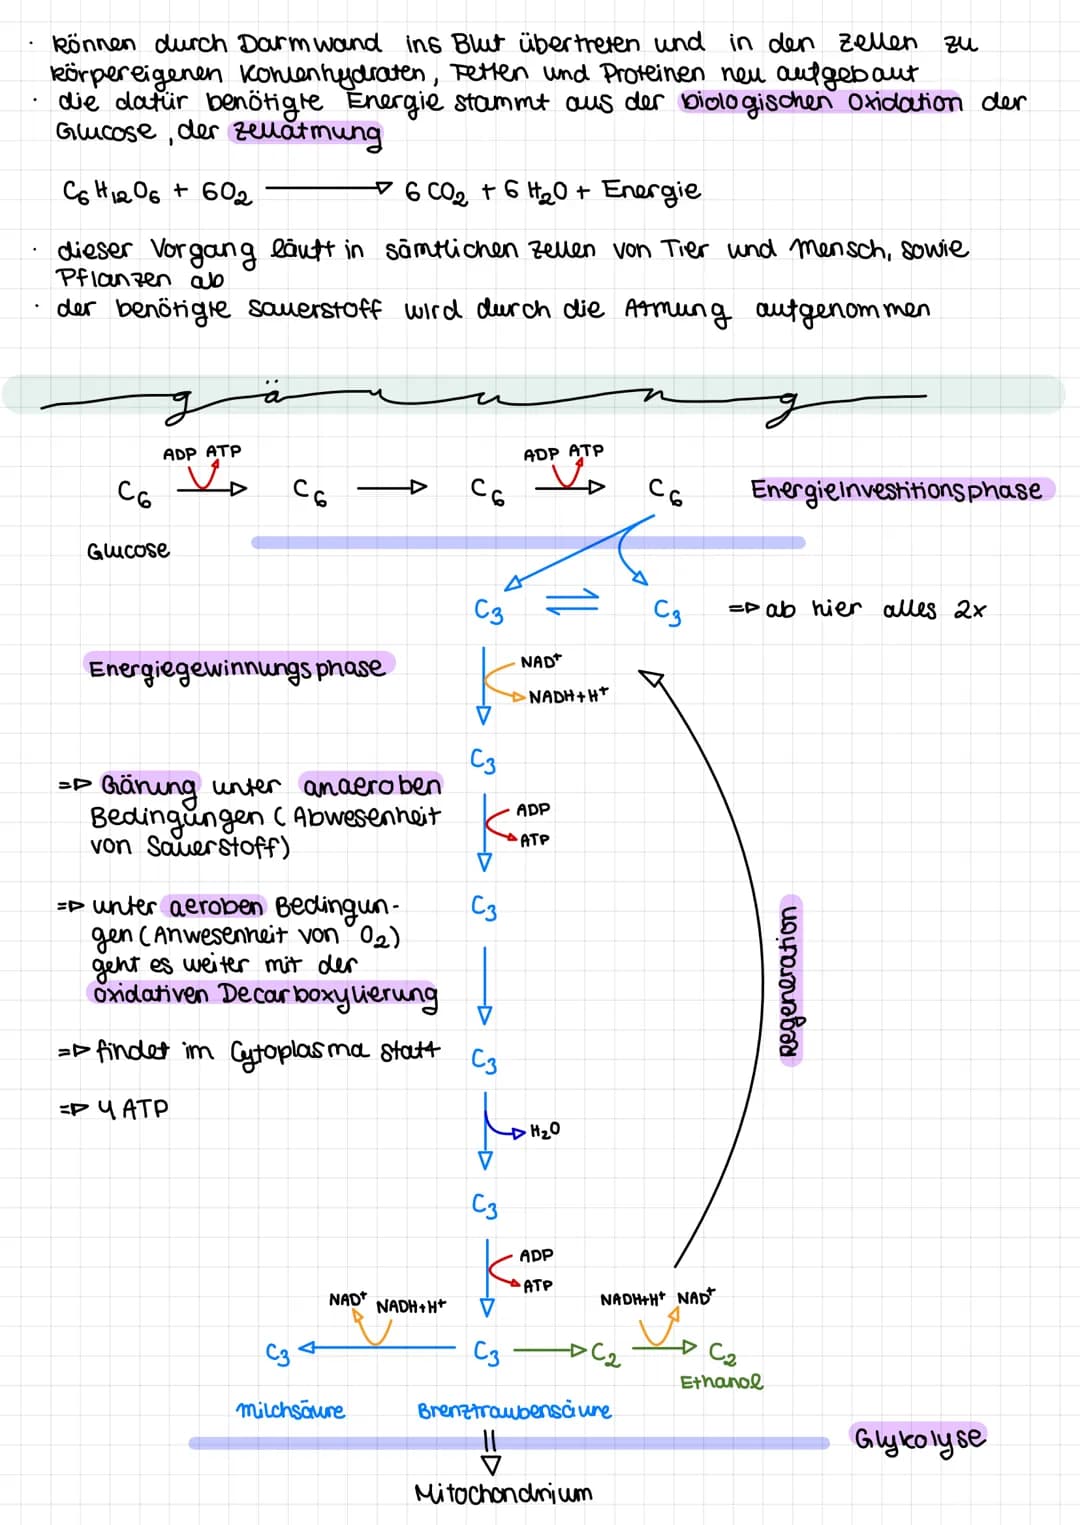 · können durch Darmwand ins Blut übertreten und in den Zellen zu
körpereigenen Kohlenhydraten, Fetten und Proteinen neu aufgebaut
· die dafür benötigte Energie stammt aus der biologischen Oxidation der
Glucose, der Zellatmung
C₆H₁₂O₆ + 6O₂ → 6 CO₂ + 6 H₂O + Energie
· dieser Vorgang läuft in sämtlichen Zellen von Tier und Mensch, sowie
Pflanzen ab
· der benötigte Sauerstoff wird durch die Atmung aufgenommen
gärung
ADP ATP ADP ATP
C₆ → C₆ → C₆ → C₆ Energieinvestitionsphase
Glucose
C₃ ⇌ C₃ => ab hier alles 2x
Energiegewinnungsphase
NAD⁺
NADH+H⁺
C₃
=> Gärung unter anaeroben
Bedingungen (Abwesenheit
von Sauerstoff)
ADP
ATP
=> unter aeroben Bedingun-
gen (Anwesenheit von O₂)
geht es weiter mit der
oxidativen Decarboxylierung
C₃
Regeneration
=> findet im Cytoplasma statt
C₃
=> 4 ATP
H₂O
C₃
ADP
ATP
NAD⁺ NADH+H⁺ NADH+H⁺ NAD⁺
C₃ ← C₃ → C₂ → C₂
Ethanol
Milchsäure Brenztraubensäure
Glykolyse
Mitochondrium